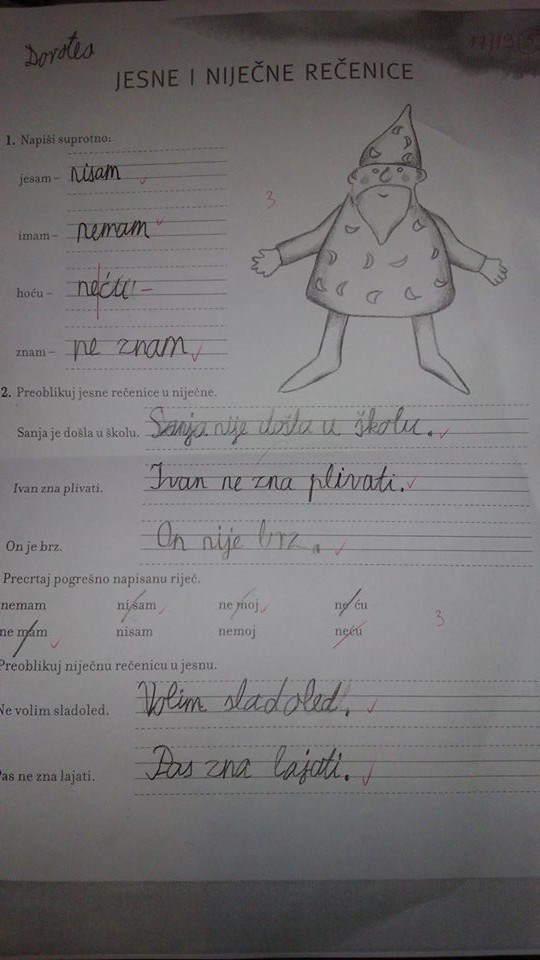 Dorotea
17/19
JESNE I NIJEČNE REČENICE
1. Napiši suprotno:
jesam – nisam
3
imam – nemam
hoću – neću
znam – ne znam
2. Preoblikuj jesne rečenice u niječne.
Sanja je došla u školu. Sanja nije došla u školu.
Ivan zna plivati. Ivan ne zna plivati.
On je brz. On nije brz.
Precrtaj pogrešno napisanu riječ.
nemam ni sam ne moj ne ću
3
ne mam nisam nemoj neću
Preoblikuj niječnu rečenicu u jesnu.
Ne volim sladoled. Volim sladoled.
Pas ne zna lajati. Pas zna lajati.